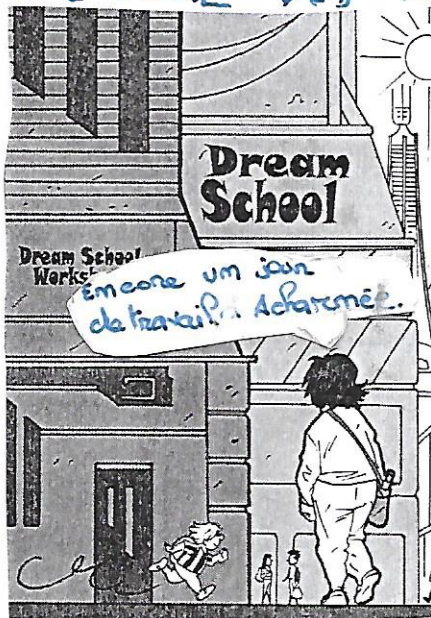 Dream
School
Dream School
Encore un jour
de travail Acharnée.